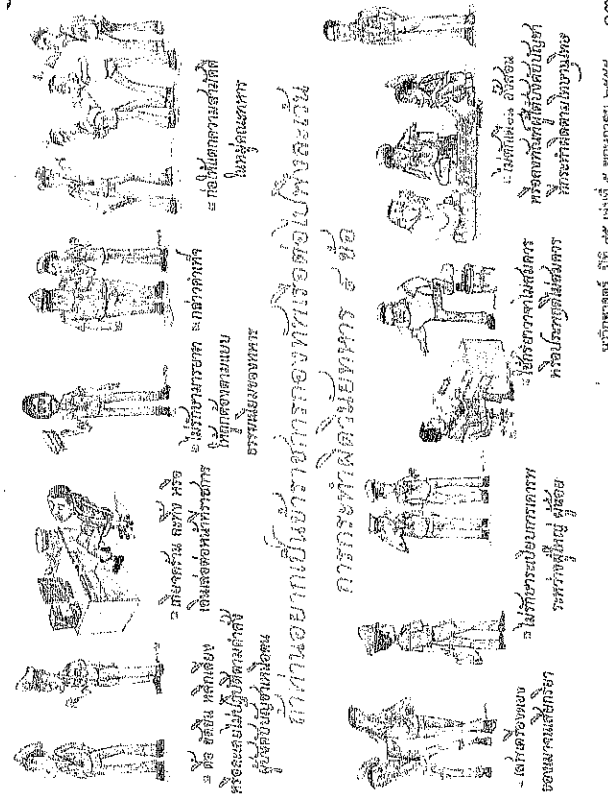 ดื้อ ขัดขืน หลีกเลี่ยง
หรือละเลยไม่ปฏิบัติตามคำสั่ง
ผู้บังคับบัญชาเหนือตน
เกียจคร้าน ละทิ้ง หรือ
เลินเล่อต่อหน้าที่ราชการ
ไม่รักษามารยาท
ให้ถูกต้องตามแบบ
ธรรมเนียมของทหาร
กล่าวคำเท็จ
ก่อให้แตกความสามัคคี
ในหมู่คณะทหาร
ถ้าท่านอยากเป็นข้าราชการกองทัพเรือต่อไปโปรดละเว้น
การกระทำผิดวินัยทหาร ๙ ข้อ
เสพเครื่องดอง
ของเมาจนเสียกิริยา
ไม่รักษาระเบียบการเคารพ
ระหว่างผู้ใหญ่ ผู้น้อย
ใช้กิริยาวาจาไม่สมควร
หรือประพฤติไม่สมควร
ไม่ตักเตือน สั่งสอน
หรือลงทัณฑ์ผู้ใต้บังคับบัญชา
ที่กระทำผิดตามโทษานุโทษ
นาวิกศาสตร์ ปีที่ เล่มที่